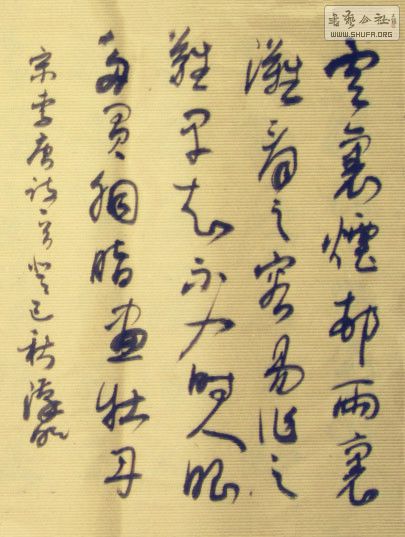 雲裏煙邨雨裏
灘看之容易作之
難早知不入時人眼
多買胭脂畫牡丹
宋李唐诗一首癸巳秋
書藝公社
WWW.SHUFA.ORG